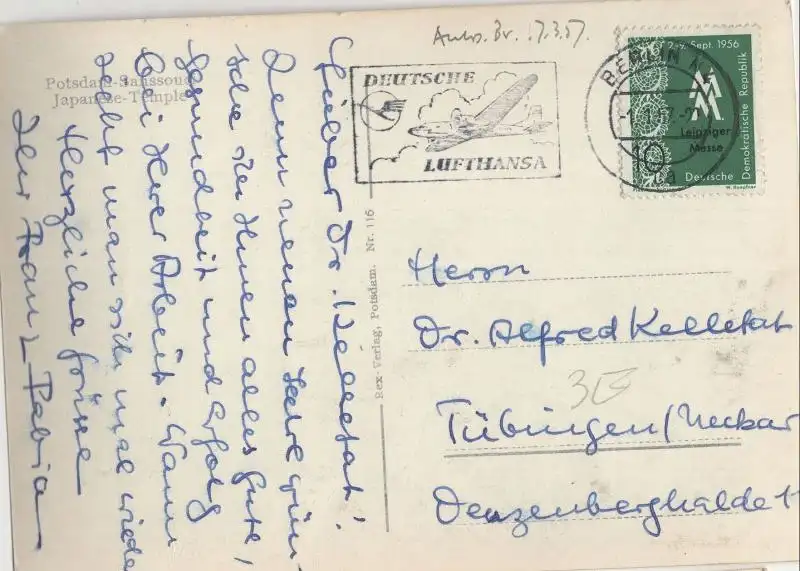 Potsdam-Sanssouci
Japanese-Temple
Lieber Dr. Kelletat!
Zum neuen Jahre wün-
sche ich Ihnen alles Gute,
Gesundheit und Erfolg
bei Ihrer Arbeit. Wann
sieht man sich mal wieder
Herzliche Grüsse
Ihr Franz
Rex-Verlag, Potsdam. Nr. 116
17.3.57.
DEUTSCHE
LUFTHANSA
BERLIN
Sept. 1956
Leipziger
Messe
Deutsche
Demokratische Republik
Herrn
Dr. Alfred Kelletat
Tübingen/Neckar
Denzenberghalde 11